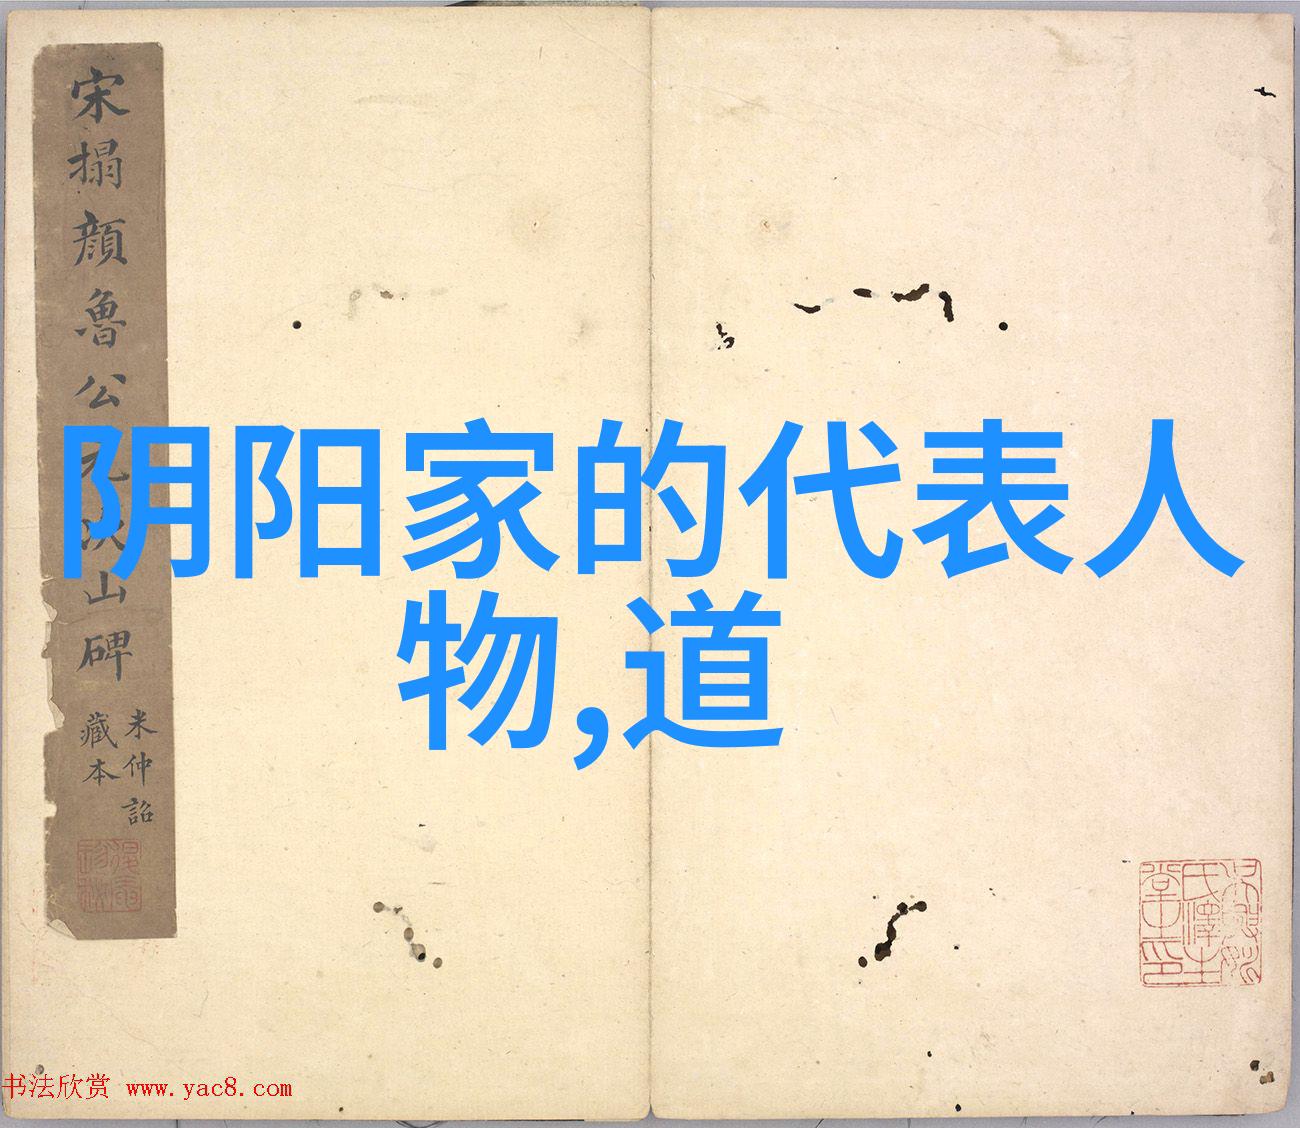 宋搨顔魯公元次山碑
米仲詔
藏本
阴阳家的代表人
物,道
书法欣赏 www.yac8.com